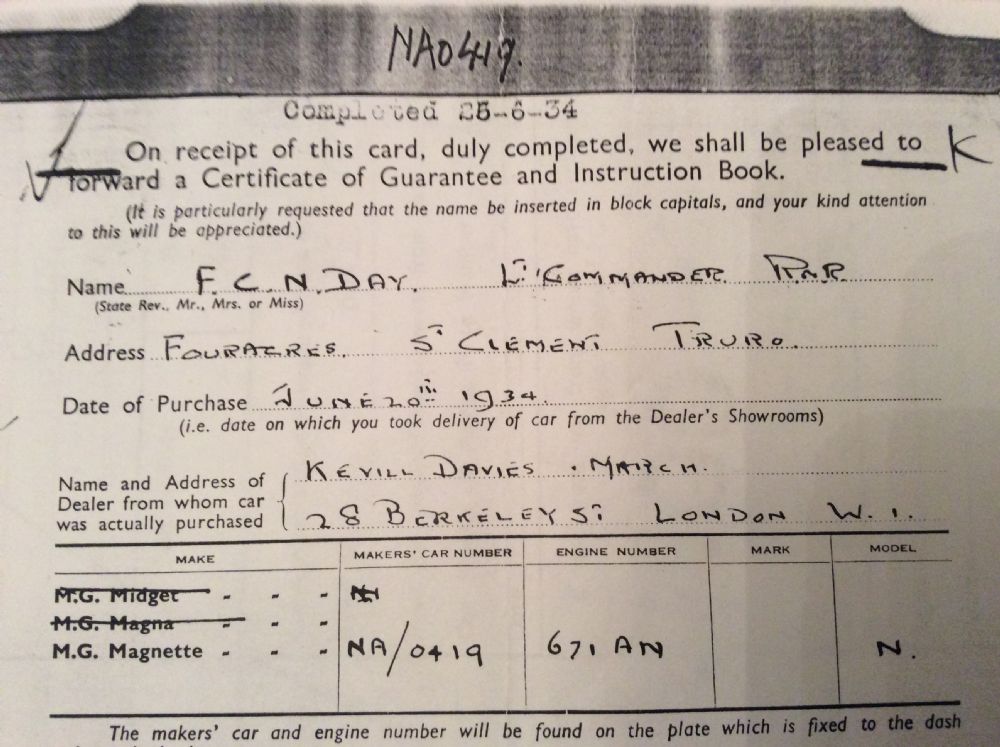 NA0419.
Completed 25-6-34
On receipt of this card, duly completed, we shall be pleased to K
forward a Certificate of Guarantee and Instruction Book.
(It is particularly requested that the name be inserted in block capitals, and your kind attention
to this will be appreciated.)
Name F. C. N. DAY. Lt COMMANDER RNR
(State Rev., Mr., Mrs. or Miss)
Address FOURACRES. ST CLEMENT TRURO.
Date of Purchase JUNE 20th 1934.
(i.e. date on which you took delivery of car from the Dealer's Showrooms)
Name and Address of KEVILL DAVIES. MARCH.
Dealer from whom car
was actually purchased 28 BERKELEY ST LONDON W.1.
MAKE MAKERS' CAR NUMBER ENGINE NUMBER MARK MODEL
M.G. Midget - - -
M.G. Magna - - -
M.G. Magnette - - - NA/0419 671 AN N.
The makers' car and engine number will be found on the plate which is fixed to the dash